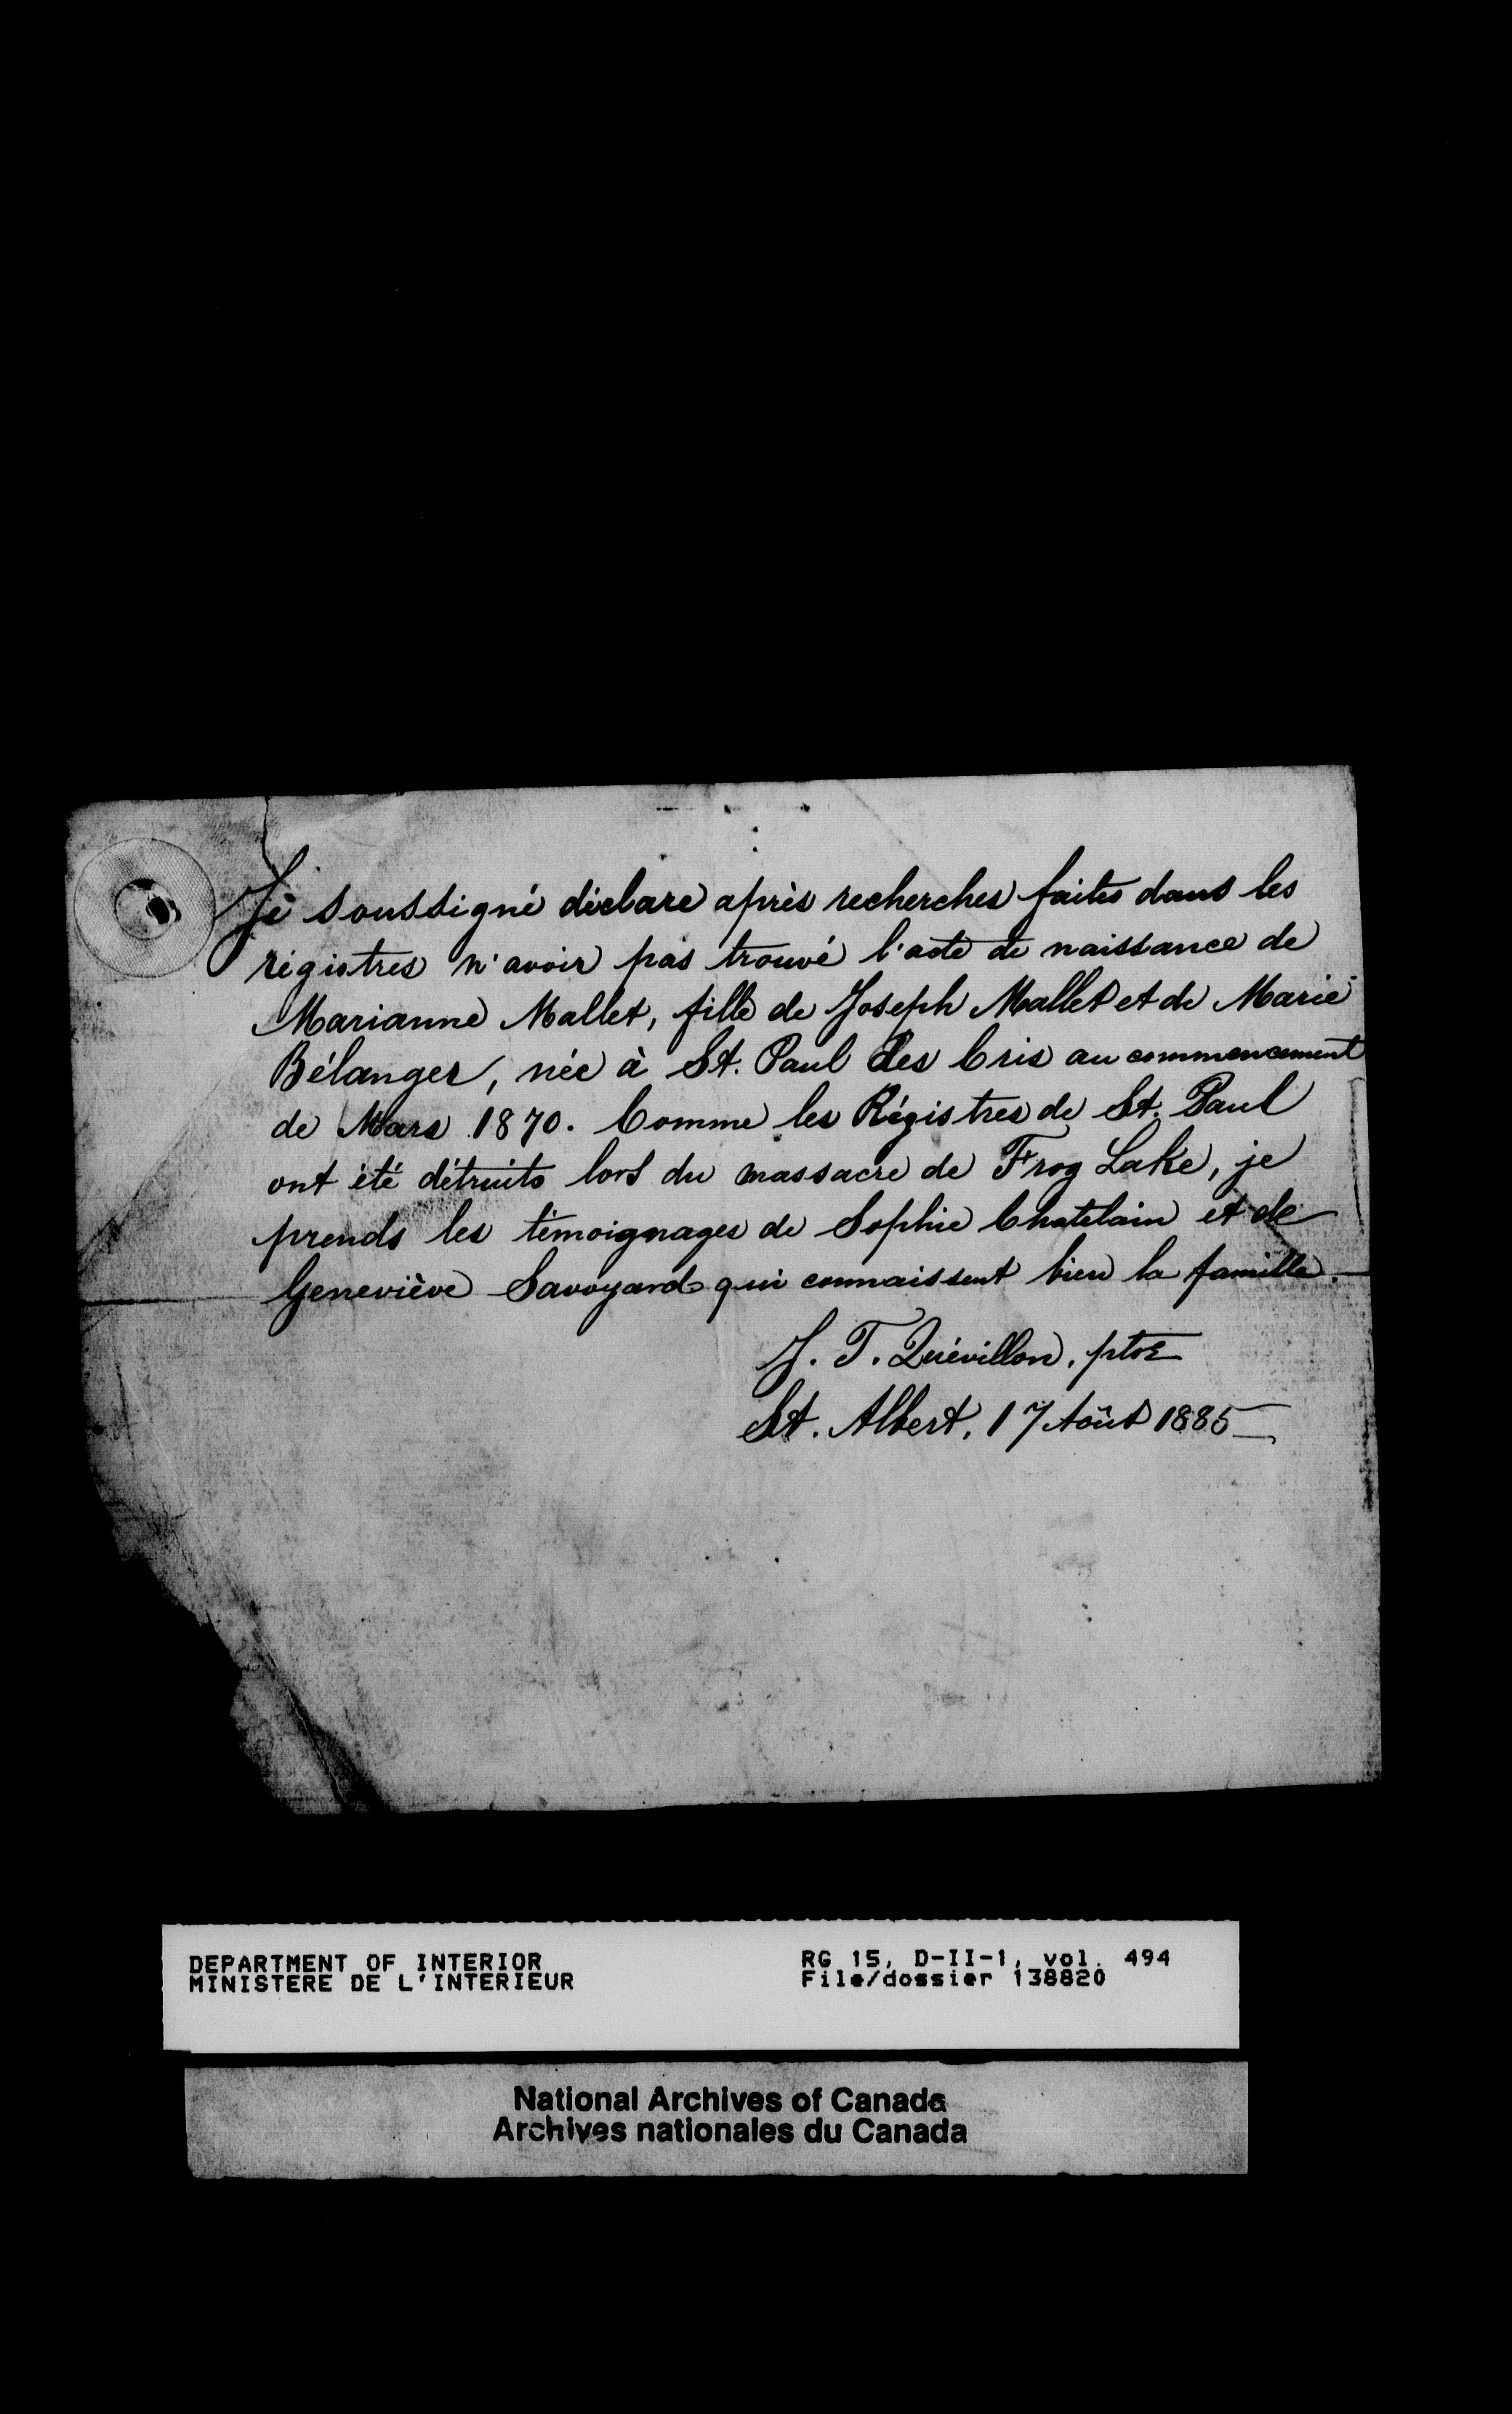 Je soussigné déclare après recherches faites dans les
régistres n'avoir pas trouvé l'acte de naissance de
Marianne Mallet, fille de Joseph Mallet et de Marie
Bélanger, née à St. Paul des Cris au commencement
de Mars 1870. Comme les Régistres de St. Paul
ont été détruits lors du massacre de Frog Lake, je
prends les témoignages de Sophie Chatelain et de
Geneviève Savoyard qui connaissent bien la famille.
J. T. Quévillon, ptre
St. Albert, 17 Août 1885
DEPARTMENT OF INTERIOR RG 15, D-II-1, vol. 494
MINISTERE DE L'INTERIEUR File/dossier 138820
National Archives of Canada
Archives nationales du Canada